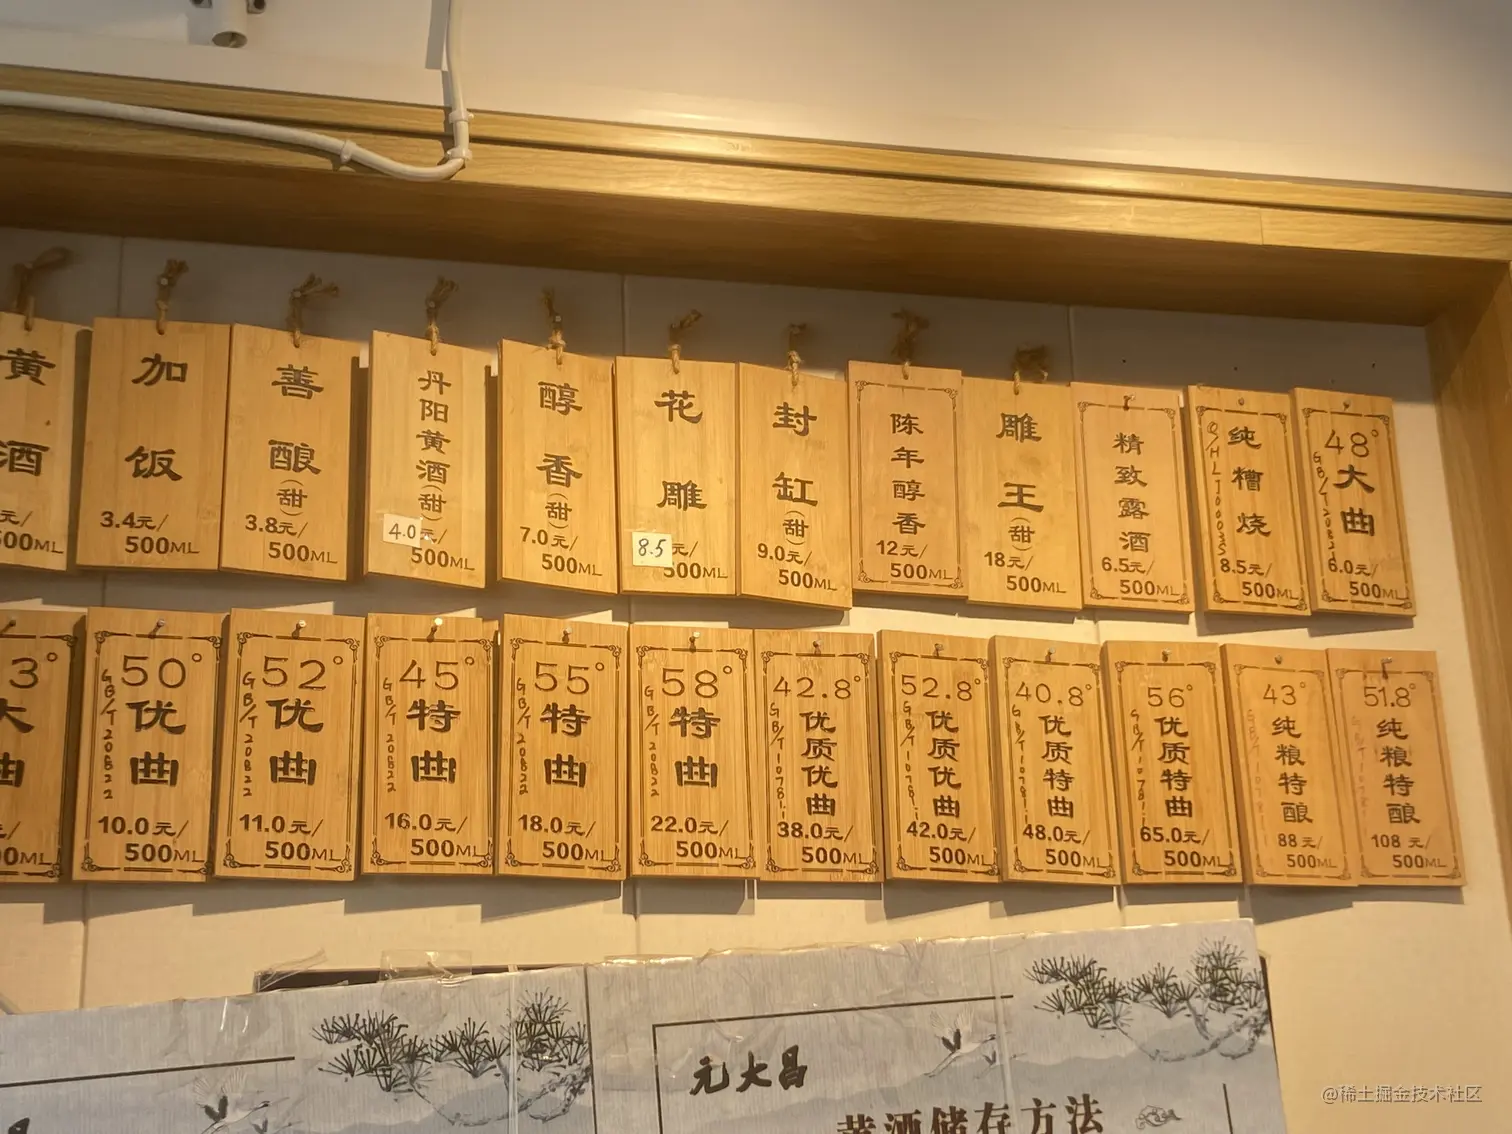 黄酒
元/
500ML
加饭
3.4元/
500ML
善酿(甜)
3.8元/
500ML
丹阳黄酒(甜)
4.0元/
500ML
醇香(甜)
7.0元/
500ML
花雕
8.5元/
500ML
封缸(甜)
9.0元/
500ML
陈年醇香
12元/
500ML
雕王(甜)
18元/
500ML
精致露酒
6.5元/
500ML
纯糟烧
8.5元/
500ML
48°
大曲
GB/T20821
6.0元/
500ML
3°
大曲
500ML
50°
优曲
GB/T20822
10.0元/
500ML
52°
优曲
GB/T20822
11.0元/
500ML
45°
特曲
GB/T20822
16.0元/
500ML
55°
特曲
GB/T20822
18.0元/
500ML
58°
特曲
GB/T20822
22.0元/
500ML
42.8°
优质优曲
GB/T10781.1
38.0元/
500ML
52.8°
优质优曲
GB/T10781.1
42.0元/
500ML
40.8°
优质特曲
GB/T10781.1
48.0元/
500ML
56°
优质特曲
GB/T10781.1
65.0元/
500ML
43°
纯粮特酿
88元/
500ML
51.8°
纯粮特酿
108元/
500ML
元大昌
黄酒储存方法
@稀土掘金技术社区